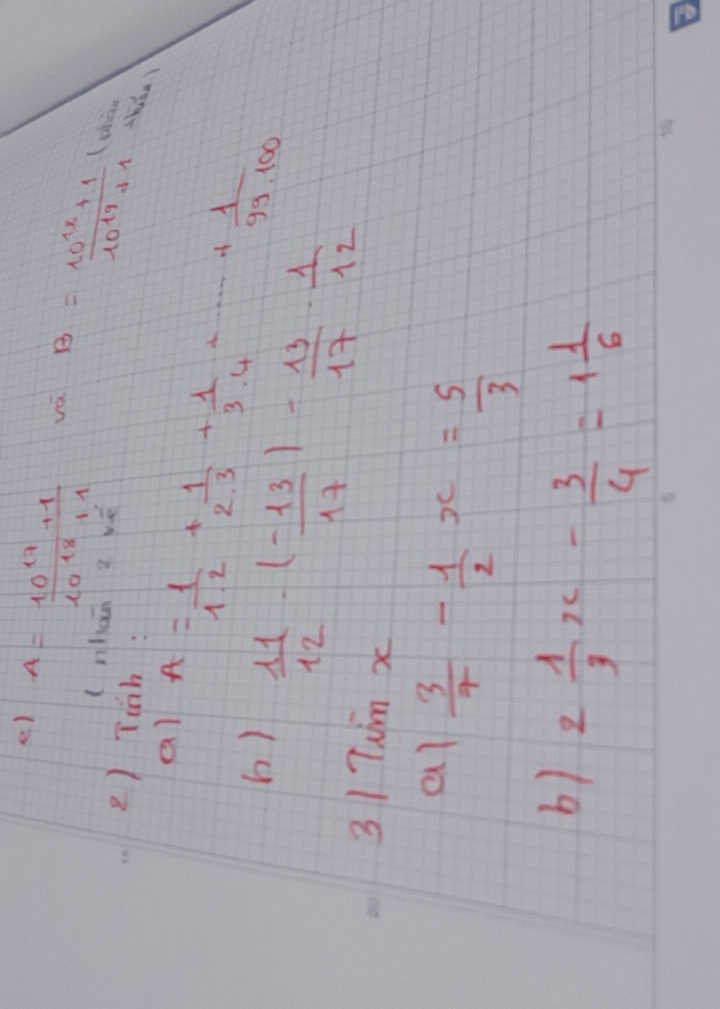 c) A = \frac{10^{17} + 1}{10^{18} + 1} và B = \frac{10^{18} + 1}{10^{19} + 1} (nhân
( nhân 2 vế
thêm)
2) Tính :
a) A = \frac{1}{1.2} + \frac{1}{2.3} + \frac{1}{3.4} + ...... + \frac{1}{99.100}
b) \frac{11}{12} . (-\frac{13}{17}) - \frac{13}{17} . \frac{1}{12}
3) Tìm x
a) \frac{3}{7} - \frac{1}{2} x = \frac{5}{3}
b) 2 \frac{1}{3} x - \frac{3}{4} = 1 \frac{1}{6}
20
5
10